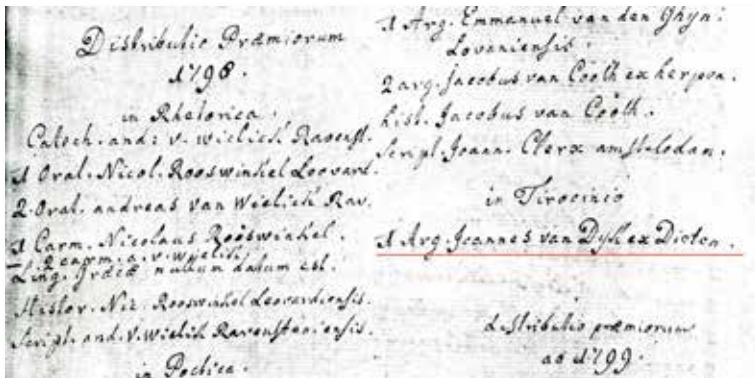 Distributio Præmiorum
1798.
in Rhetorica.
Catech. and: v. wielick Ravenst.
1 Orat. Nicol. Rooswinkel Leovard.
2. Orat. andreas van Wielick Rav.
1 Carm. Nicolaus Rooswinkel.
2 carm. a. v. wielick
Ling. Græcæ nullum datum est.
Histor. Nic. Rooswinkel Leovardiensis.
Script. and. v. wielick Ravensteniensis.
in Poetica.
1 Arg. Emmanuel van den Ghyn:
Lovaniensis.
2 arg. Jacobus van Cooth ex herpen.
hist. Jacobus van Cooth.
script. Joann. Clerx amstelodam.
in Tirocinio
1 Arg. Joannes van Dyk ex Dieten.
distributio præmiorum
ao 1799.